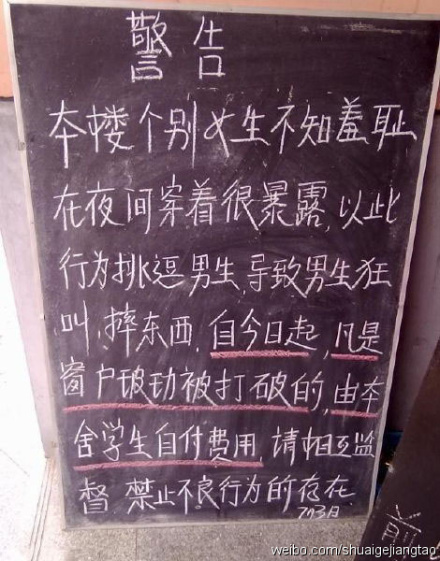 警告
本楼个别女生不知羞耻
在夜间穿着很暴露,以此
行为挑逗男生,导致男生狂
叫、摔东西,自今日起,凡是
窗户玻功被打破的,由本
舍学生自付费用,请相互监
督 禁止不良行为的存在.
7月3日
前
weibo.com/shuaigejiangtao